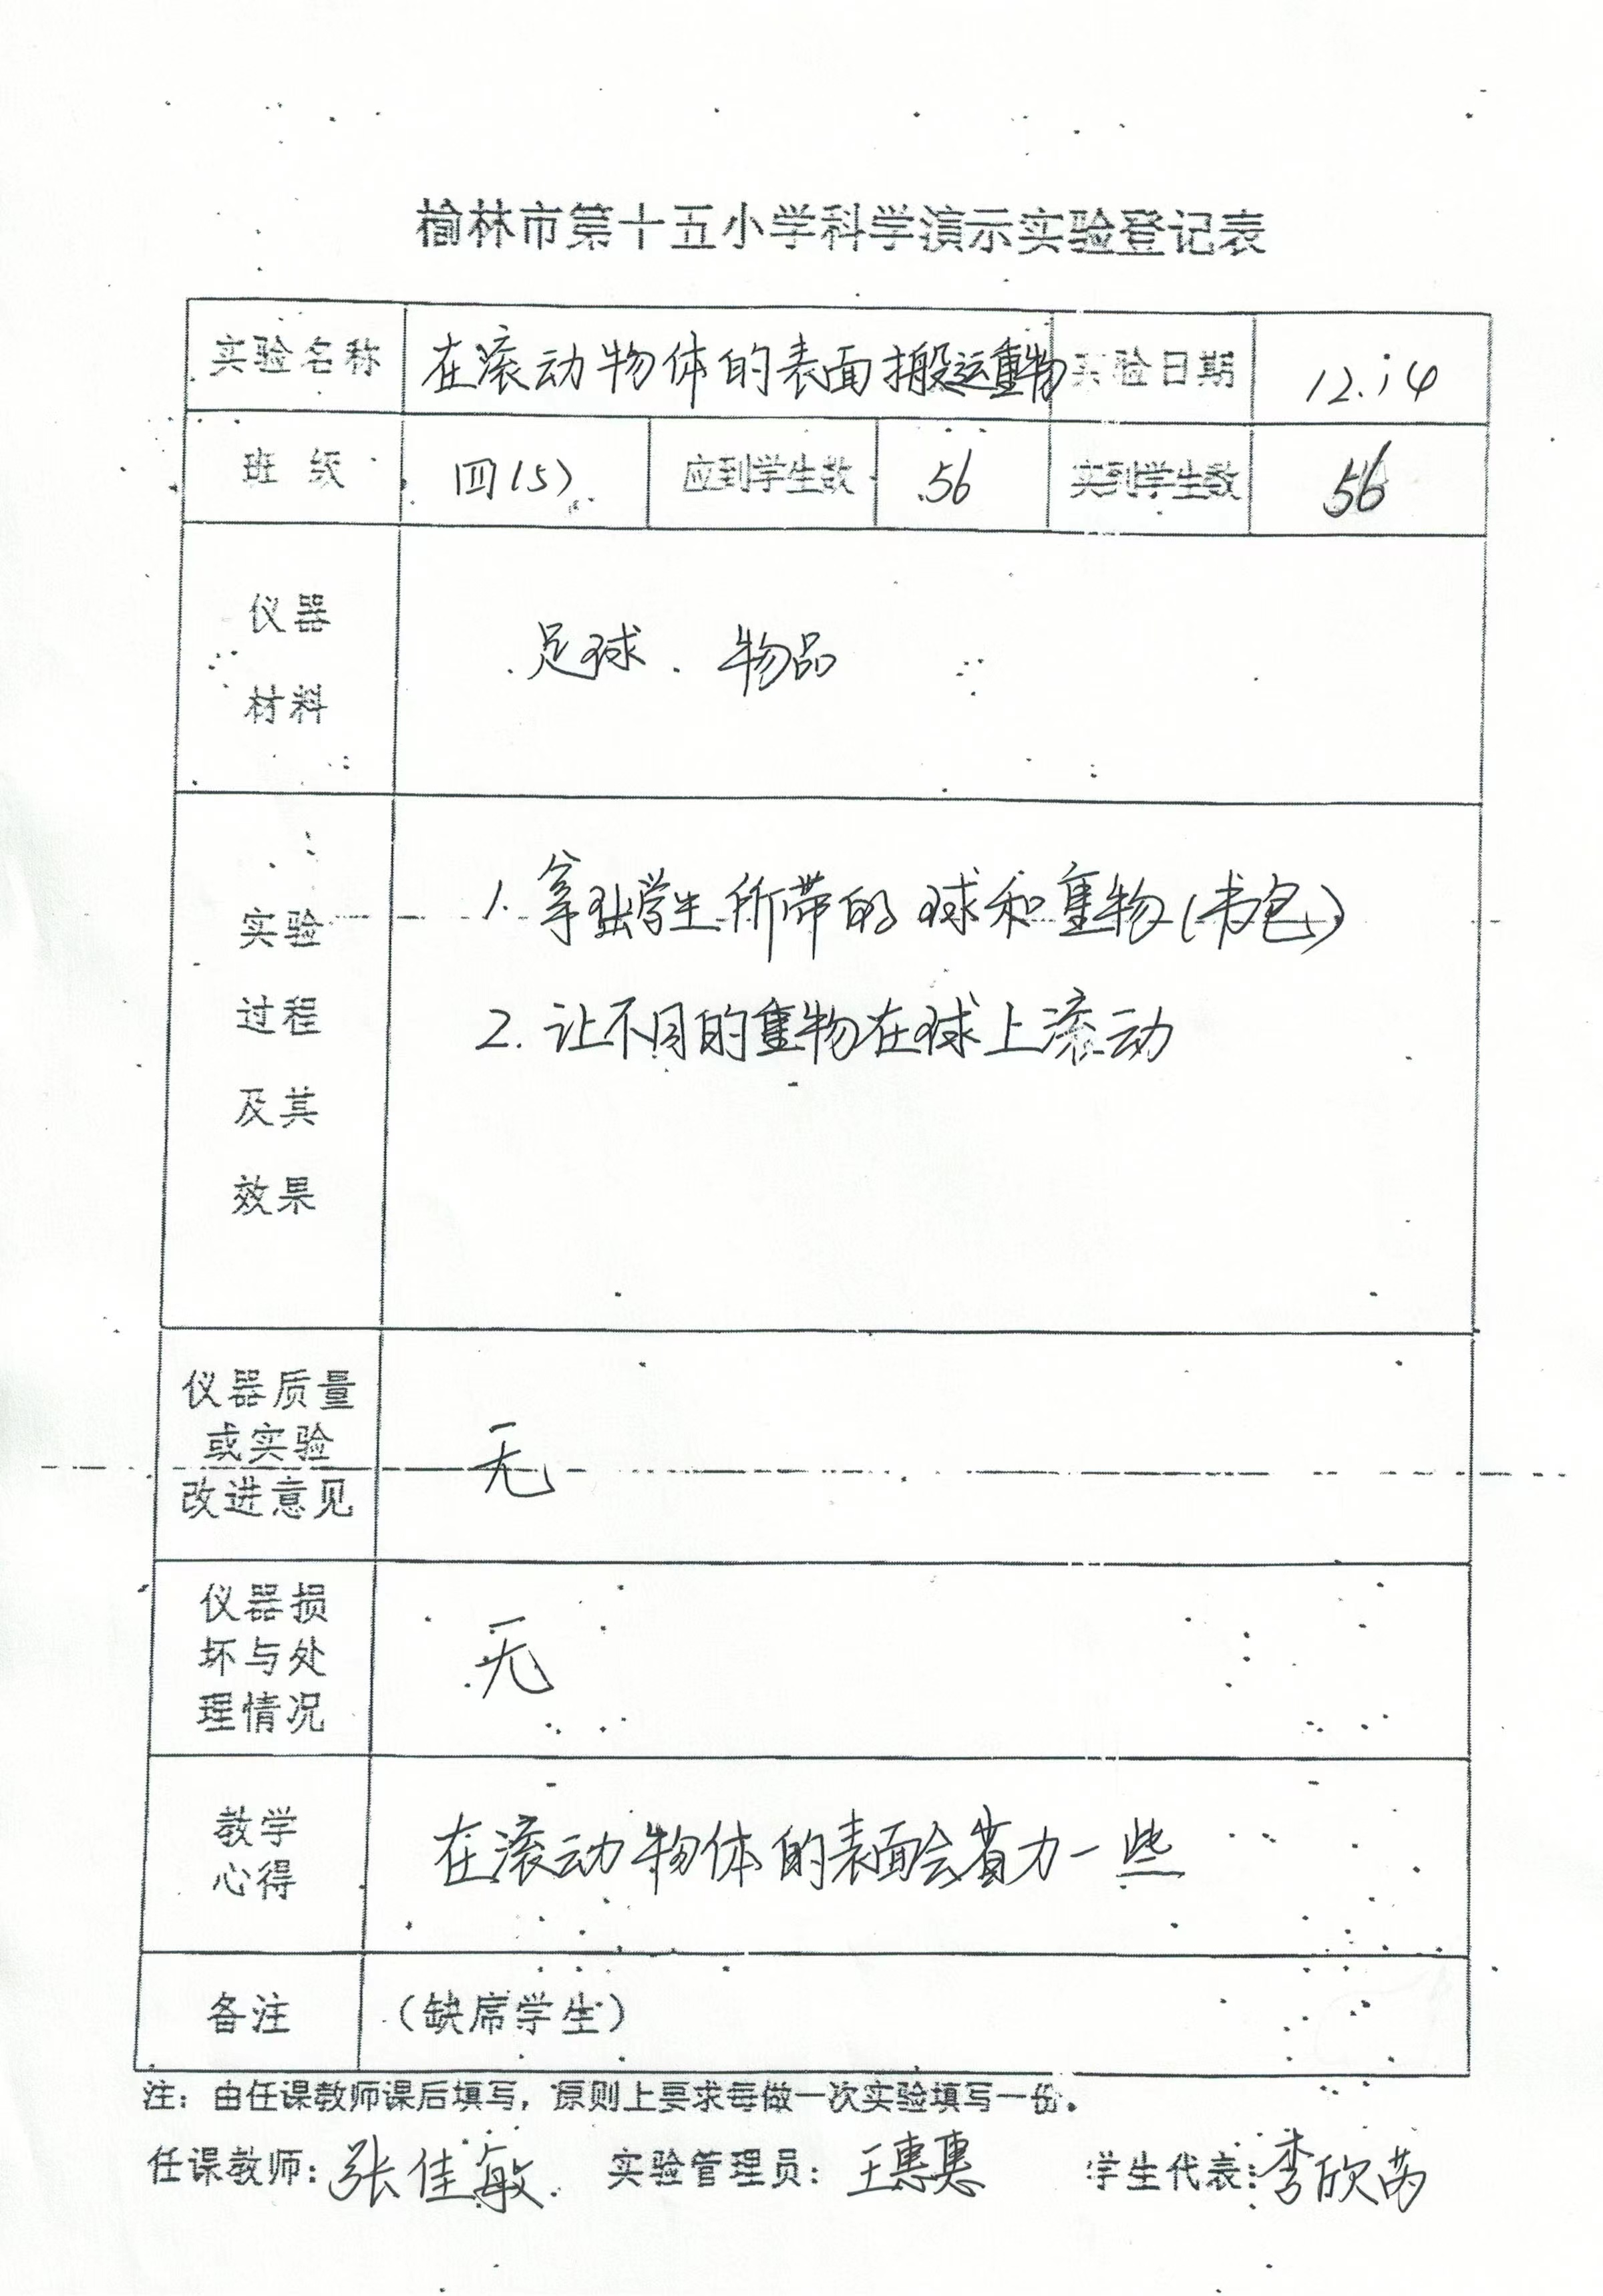 榆林市第十五小学科学演示实验登记表
实验名称 在滚动物体的表面搬运重物 实验日期 12.14
班级 四(5) 应到学生数 56 实到学生数 56
仪器
材料
足球. 物品
实验
过程
及其
效果
1. 拿出学生所带的球和重物(书包)
2. 让不同的重物在球上滚动
仪器质量
或实验
改进意见
无
仪器损
坏与处
理情况
无
教学
心得
在滚动物体的表面会省力一些
备注 (缺席学生)
注：由任课教师课后填写，原则上要求每做一次实验填写一份。
任课教师：张佳敏 实验管理员：王惠惠 学生代表：李欣芮